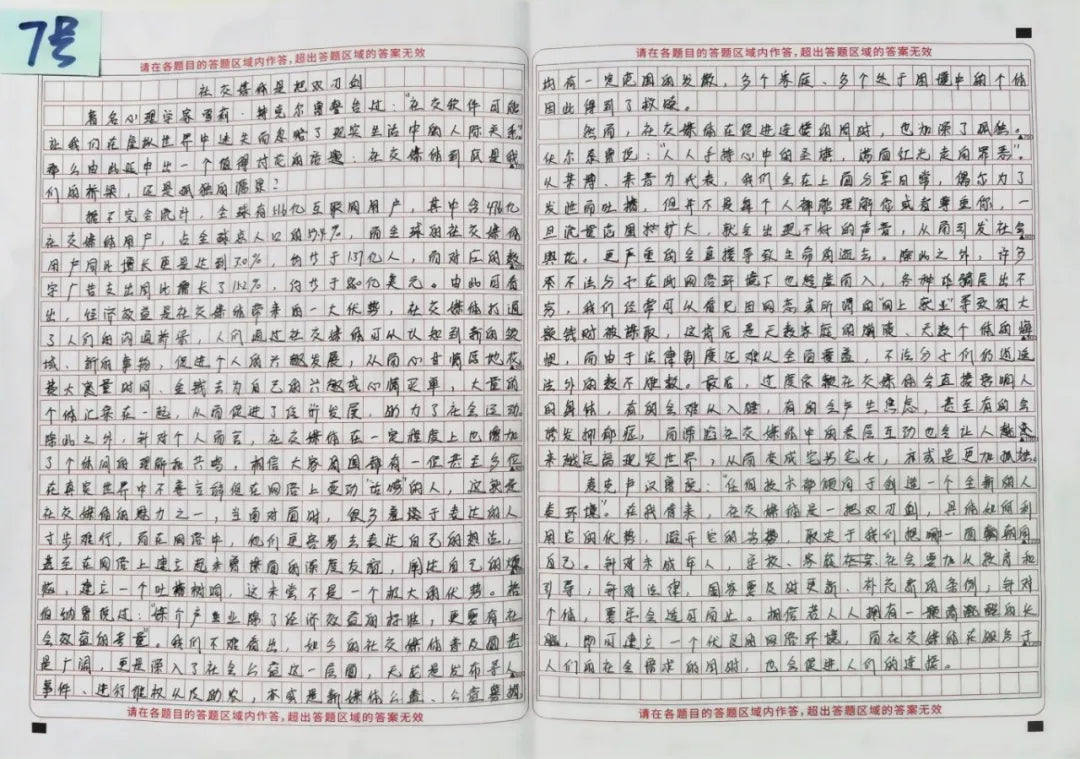 7号
请在各题目的答题区域内作答，超出答题区域的答案无效
社交媒体是把双刃剑
著名心理学家雪莉·特克尔曾警告过："社交软件可能
让我们在虚拟世界中迷失而忽略了现实生活中的人际关系"
那么由此延申出一个值得讨论的话题：社交媒体到底是我
们的桥梁，还是孤独的源泉？
据不完全统计，全球有51.6亿互联网用户，其中含47.6亿
社交媒体用户，占全球总人口的59.4%，而全球的社交媒体
用户同比增长更是达到3.0%，约等于1.37亿人，而对应的数
字广告支出同比增长了
元。由此可看
出，经济效益是社交媒体带来的一大优势，社交媒体打通
了人们的沟通桥梁，人们通过社交媒体可以认知到新的领
域、新的事物，促进个人的兴趣发展，从而心甘情愿地花
费大量时间、金钱去为自己的兴趣或心情买单，大量的
个体汇聚在一起，从而促进了经济发展，助力了社会运动。
除此之外，针对个人而言，社交媒体在一定程度上也增加
了个体间的理解和共鸣，相信大家周围都有一位甚至多位
在真实世界中不善言辞但在网络上变动"
"的人，这就是
社交媒体的魅力之一，当面对面时，很多羞涩于表达的人
寸步难行，而在网络中，他们更容易去表达自己的想法，
甚至在网络上建立起未曾接面的深度友谊，阐述自己的烦
恼，建立一个吐槽树洞，这未尝不是一个极大的优势。
伯纳曾说过："媒介产业业除了经济效益的标准，更要有社
会效益的考量"。我们不难看出，如今的社交媒体普及圆甚
是广阔，更是深入了社会公益这一层面，无论是发布寻人
事件、进行维权以及助农，
是新媒体公益、公益
请在各题目的答题区域内作答，超出答题区域的答案无效
请在各题目的答题区域内作答，超出答题区域的答案无效
均有一定范围的发散，多个家庭、多个处于困境中的个体
因此得到了救援。
然而，社交媒体在促进连接的同时，也加深了孤独。
伏尔泰曾说："人人手持心中的圣旗，满面红光走向罪恶"。
以某博、某音为代表，我们会在上面分享日常，偶尔为了
发泄而吐槽，但并不是每个人都能理解你或者尊重你，一
旦流量范围被扩大，就会出现不好的声音，从而引发社会
舆论。更严重的会直接导致生命的逝去。除此之外，许多
不法分子在此网络环境下也趁虚而入，各种诈骗层出不
穷，我们经常可以看见因网恋或所谓的"网上
"导致的大
额钱财被榨取，这背后是无数家庭的崩溃、无数个体的懊
悔，而由于法律制度还难以全面覆盖，不法分子们仍逍遥
法外的数不胜数。最后，过度依赖社交媒体会直接影响人
的身体，有的会难以入睡，有的会产生焦虑，甚至有的会
诱发抑郁症，而深陷社交媒体中的表层互动也会让人越来
来越远离现实世界，从而变成宅男宅女，亦或是更加孤独。
麦克卢汉曾说："任何技术都倾向于创造一个全新的人
类环境"。在我看来，社交媒体是一把双刃剑，具体如何利
用它的优势，避开它的劣势，取决于我们把哪一面朝向
自己。针对未成年人，学校、家庭社会要加以教育和
引导；针对法律，国家要及时更新、补充新的条例；针对
个体，要学会适可而止。相信若人人拥有一颗清澈的头
脑，即可建立一个优良的网络环境，而社交媒体在服务于
人们的社会需求的同时，也会促进人们的连接。
请在各题目的答题区域内作答，超出答题区域的答案无效